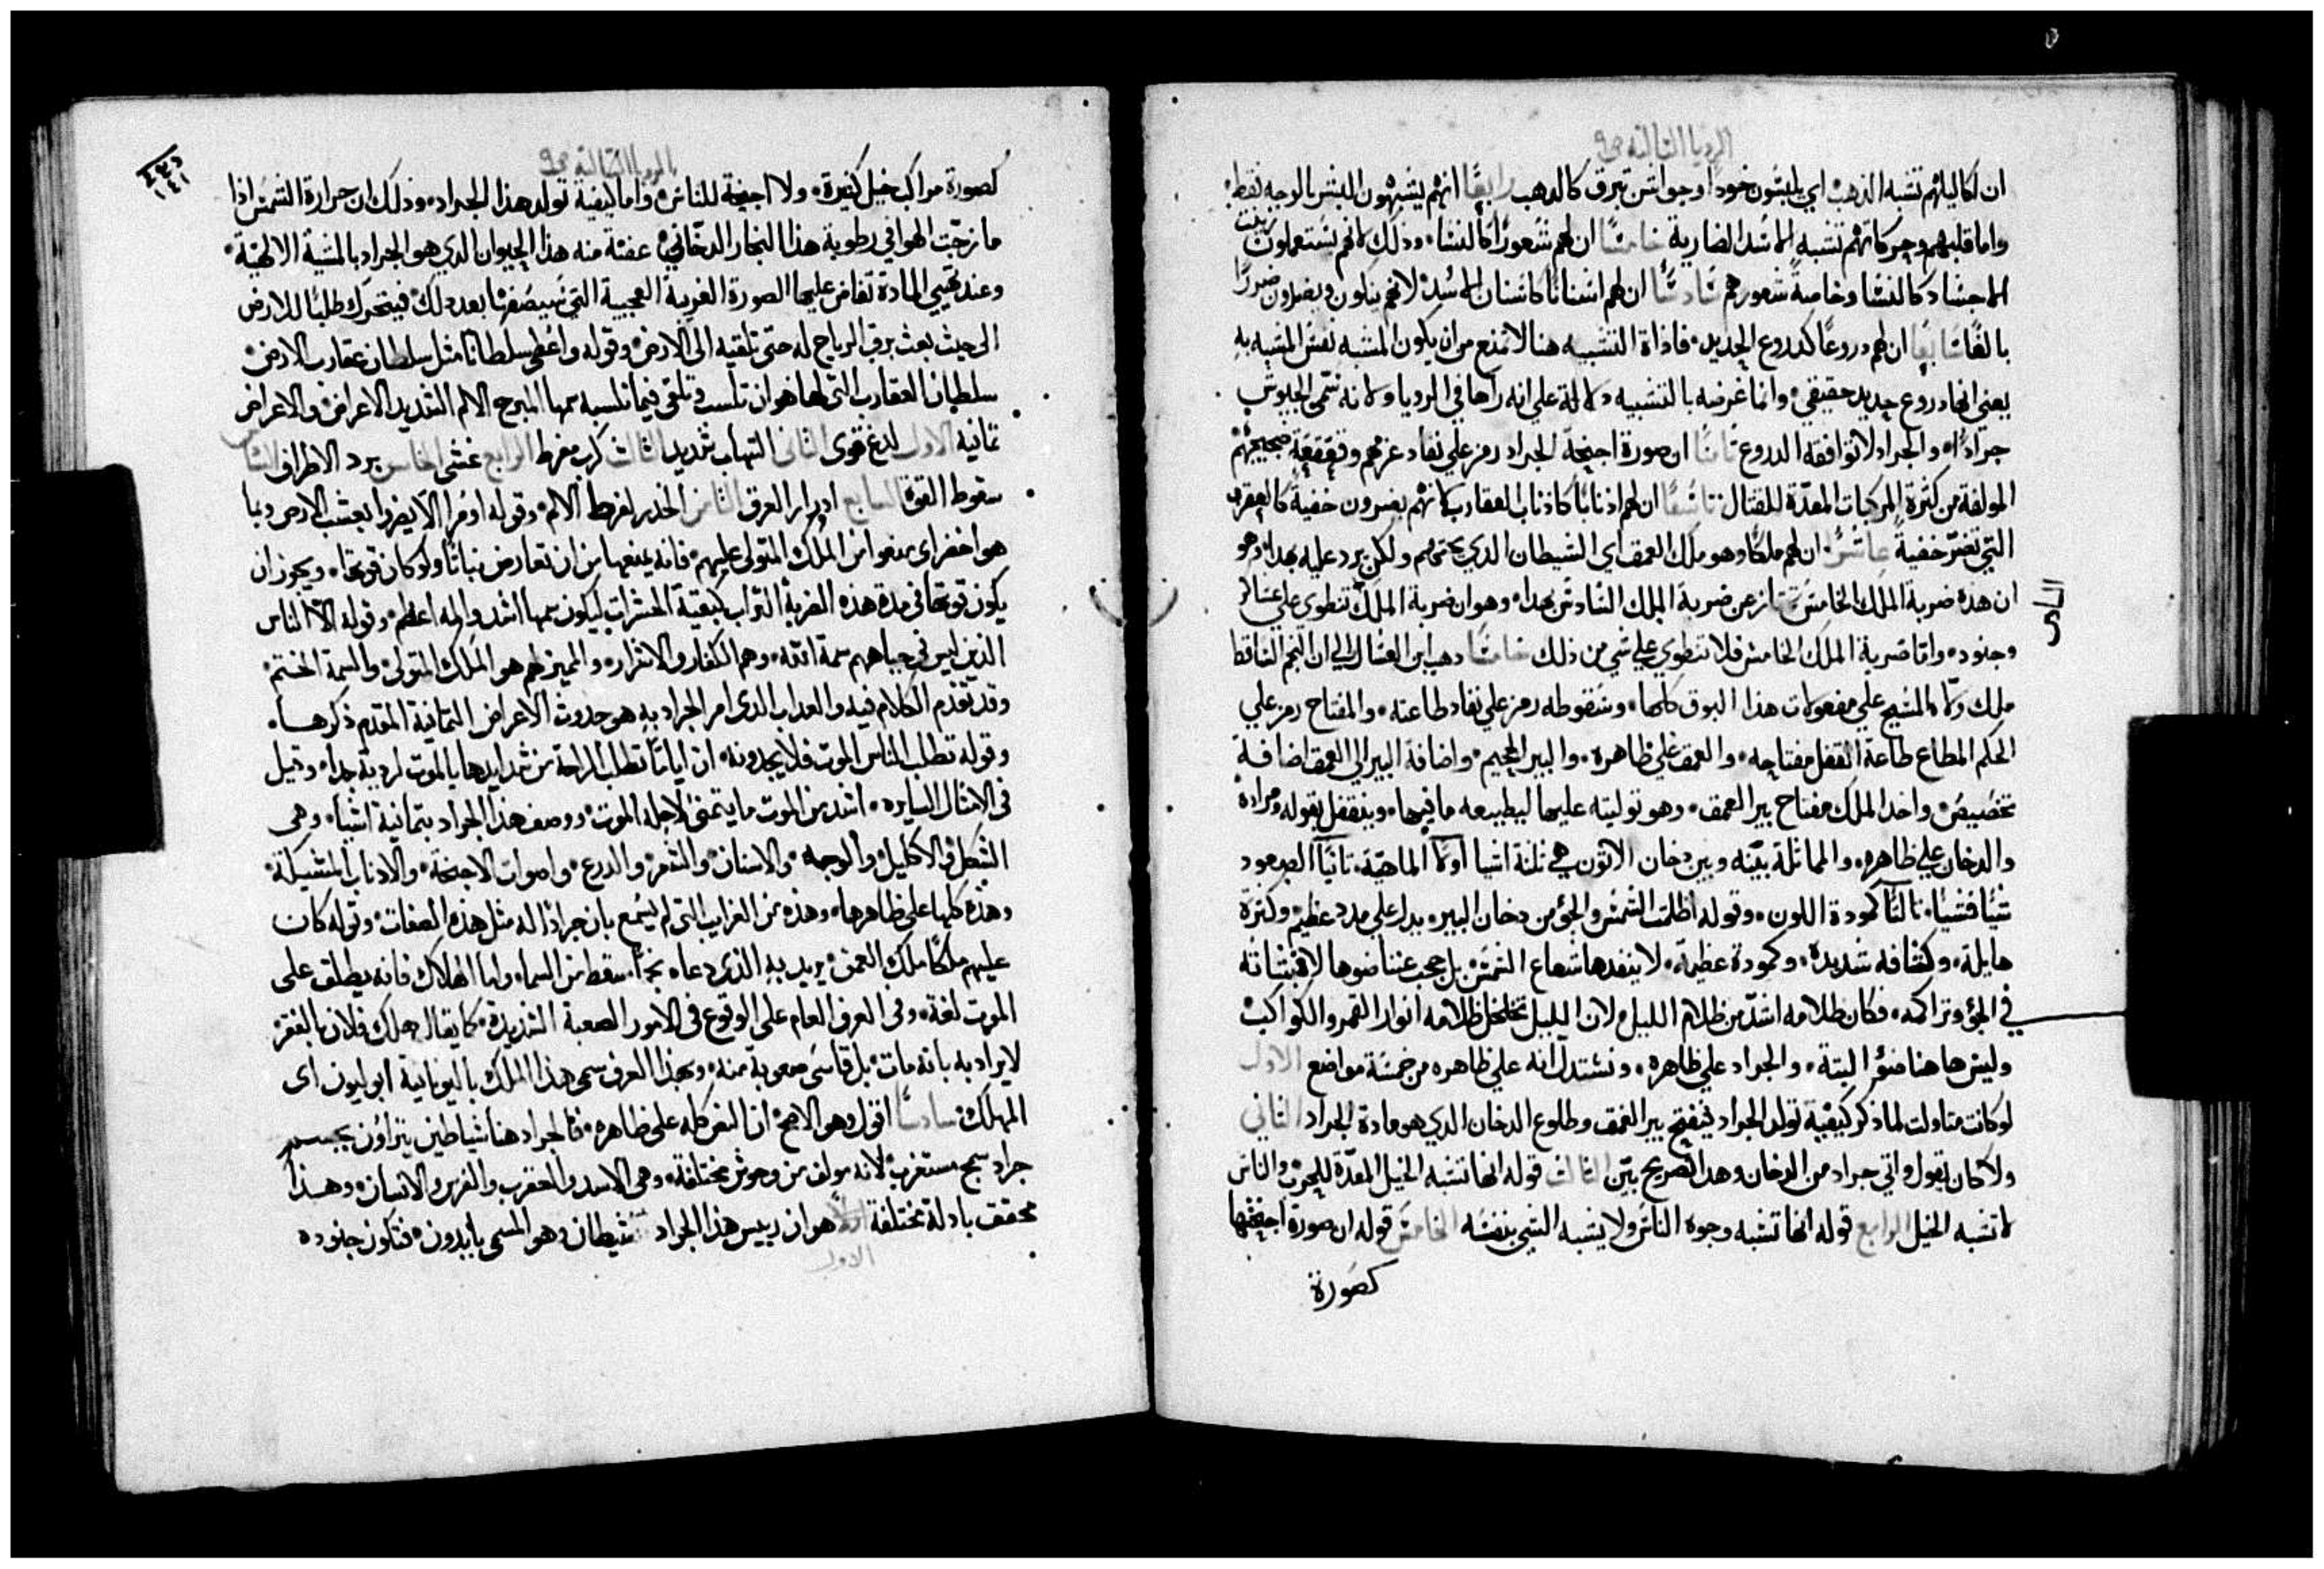 الرويا الثالثه ص٩
ان اكاليلهم تشبه الذهب اي يلبسون خودا وجواشن تبرق كالدهب رابعًا انهم يشبهون البشر بالوجه فقط
واما قلبهم وحركاتهم تشبه الاسد الضارية خامسًا ان لهم شعورًا كالنسا، وذلك لانهم يستعملون
الاجساد كالنسا وخاصةً شعورهم سادسًا ان لهم اسنانًا كاسنان الاسد لانهم ينكون ويضرون ضررًا
بالغًا سابعًا ان لهم دروعًا كدروع الحديد، فاذاة التشبيه هنا لا تمنع من ان يكون المشبه نفس المشبه به
يعني انها دروع حديد حقيقي، وانما غرضه بالتشبيه دلالة علي انه رآها في الرويا ولانه سمي الجيوش
جرادًا، والجراد لا توافقه الدروع ثامنًا ان صورة اجنحة الجراد رمز علي نفاد عزمهم وقعقعة ضجيجهم
المولفة من كثرة المركبات المعدّة للقتال تاسعًا ان لهم اذنابًا كاذناب العقارب لانهم يضرون خفيةً كالعقرب
التي تضرّ خفيةً عاشرًا ان لهم ملكًا وهو ملك العمق اي الشيطان الدي يحثهم ولكن يرد عليه بهذا وهو
ان هذه ضربة الملك الخامس تمتاز عن ضربة الملك السادس بعدا، وهو ان ضربة الملك تنطوي علي عساكر
السادس
وجنوده، واما ضربة الملك الخامس فلا تنطوي علي شي من ذلك خامسًا دهب ابن العسال الي ان النجم الساقط
ملك وكّله المسيح علي مفعولات هذا البوق كلها، وسقوطه رمز علي نفاد طاعته، والمفتاح رمز علي
الحكم المطاع طاعة القفل مفتاحه، والعمق علي ظاهره، والبير الجحيم، واضافة البير الي العمق اضافة
تخصيص، واخد الملك مفتاح بير العمق، وهو توليته عليها ليطيعه ما فيها، وينقفل بقوله ومراده
والدخان علي ظاهره، والمماثلة بينه وبين دخان الاتون هي ثلثة اشيا اولًا الماهيّة، ثانيًا الصعود
شيًا فشيًا، ثالثًا كمودة اللون، وقوله اظلمت الشمس والجو من دخان البير، يدل علي مدد عظيم وكثرة
هايلة، وكثافه شديدة، وكمودة عظيمة، لا ينفدها شعاع الشمس بل حجب عنا ضوها لانبثاثه
في الجو وتراكمه، فكان ظلامه اشدّ من ظلام الليل، لان الليل تخلخل ظلامه انوار القمر والكواكب
وليس هاهنا ضوء البتة، والجراد علي ظاهره، ونستدل انه علي ظاهره من خمسة مواضع الاول
لو كانت متاولت لما ذكر كيفية تولد الجراد بفتح بير العمق وطلوع الدخان الدي هو مادة الجراد الثاني
ولا كان يقول واتي جراد من الدخان وهدا تصريح بيّن الثالث قوله انها تشبه الخيل المعدّة للحرب والناس
لا تشبه الخيل الرابع قوله انها تشبه وجوه الناس ولا يشبه الشي بنفسه الخامس قوله ان صورة اجنحتها
كصورة
الرويا الثالثة ص٩
١٤١
كصورة مراكب خيل كثيرة، ولا اجنحة للناس، واما كيفية تولد هذا الجراد، وذلك ان حرارة الشمس اذا
مازجت الهوا في رطوبة هذا البخار الدخاني، عفنة منه هذا الحيوان الدي هو الجراد بالمشية الالهية،
وعند تهيي المادة تفاض عليها الصورة الغريبة العجيبة التي سيصفها بعد دلك، فيتحرك طلبًا للارض
الي حيث بعث برق الرياح له حتي تلقيه الي الارض، وقوله واعطي سلطانًا مثل سلطان عقارب الارض،
سلطان العقارب التي لها هو ان تلسب وتلقي فيما تلسبه سمها المبرح الالم الشديد الاعراض، والاعراض
ثمانية الاول لدغ قوي الثاني التهاب شديد الثالث كرب مفرط الرابع غشي الخامس برد الاطراف السادس
سقوط القوة السابع ادرار العرق الثامن الخدر لفرط الالم، وقوله اومرا الّا يضروا بعشب الارض ولا بما
هو اخضر اي منعوا من الملك المتولي عليهم، فانه يمنعها من ان تعارض نباتًا ولو كان قوتها، ويجوز ان
يكون قوتها في مدة هذه الضربة التراب كبقية الحشرات ليكون سمها اشد والله اعلم، وقوله الّا الناس
الذين ليس في جباههم سمة الله، وهم الكفار والاشرار، والمميز لهم هو الملك المتولي، والسمة الختم،
وقد تقدم الكلام فيه والعداب الدي امر الجراد به هو حدوث الاعراض الثمانية المقدم ذكرها،
وقوله تطلب الناس الموت فلا يجدونه، ان ايامًا تطلب الراحة من شدايدها بالموت لردية جدا، وقيل
في الامثال السايره، اشد من الموت ما يتمني لاجله الموت، ووصف هذا الجراد بثمانية اشيا، وهي
الشكل والاكليل والوجه، والاسنان، والشعر، والدرع، واصوات الاجنحة، والاذناب المشيكلة،
وهذه كلها علي ظاهرها، وهذه من الغرايب التي لم يسمع بان جرادًا له مثل هذه الصفات، وقوله كان
عليهم ملكًا ملك العمق، يريد به الذي دعاه نجمًا سقط من السما، واما الهلاك فانه يطلق علي
الموت لغة، وفي العرف العام علي الوقوع في الامور الصعبة الشديدة، كما يقال هلك فلان بالفقر،
لا يراد به بانه مات، بل قاسي صعوبة منه، وبهذا العرف سمي هذا الملك باليونانية ابوليون اي
المهلك، سادسًا اقول وهو الاصح، ان النص كله علي ظاهره، فالجراد هنا شياطين يتراؤن بجسم
جراد سمج مستغرب لانه مولف من وحوش مختلفة، وهي الاسد والعقرب والفرس والانسان، وهذا
محقق بادلة مختلفة اولًا هو ان رييس هذا الجراد شيطان وهو المسمي بابدون، فتكون جنوده
الاول